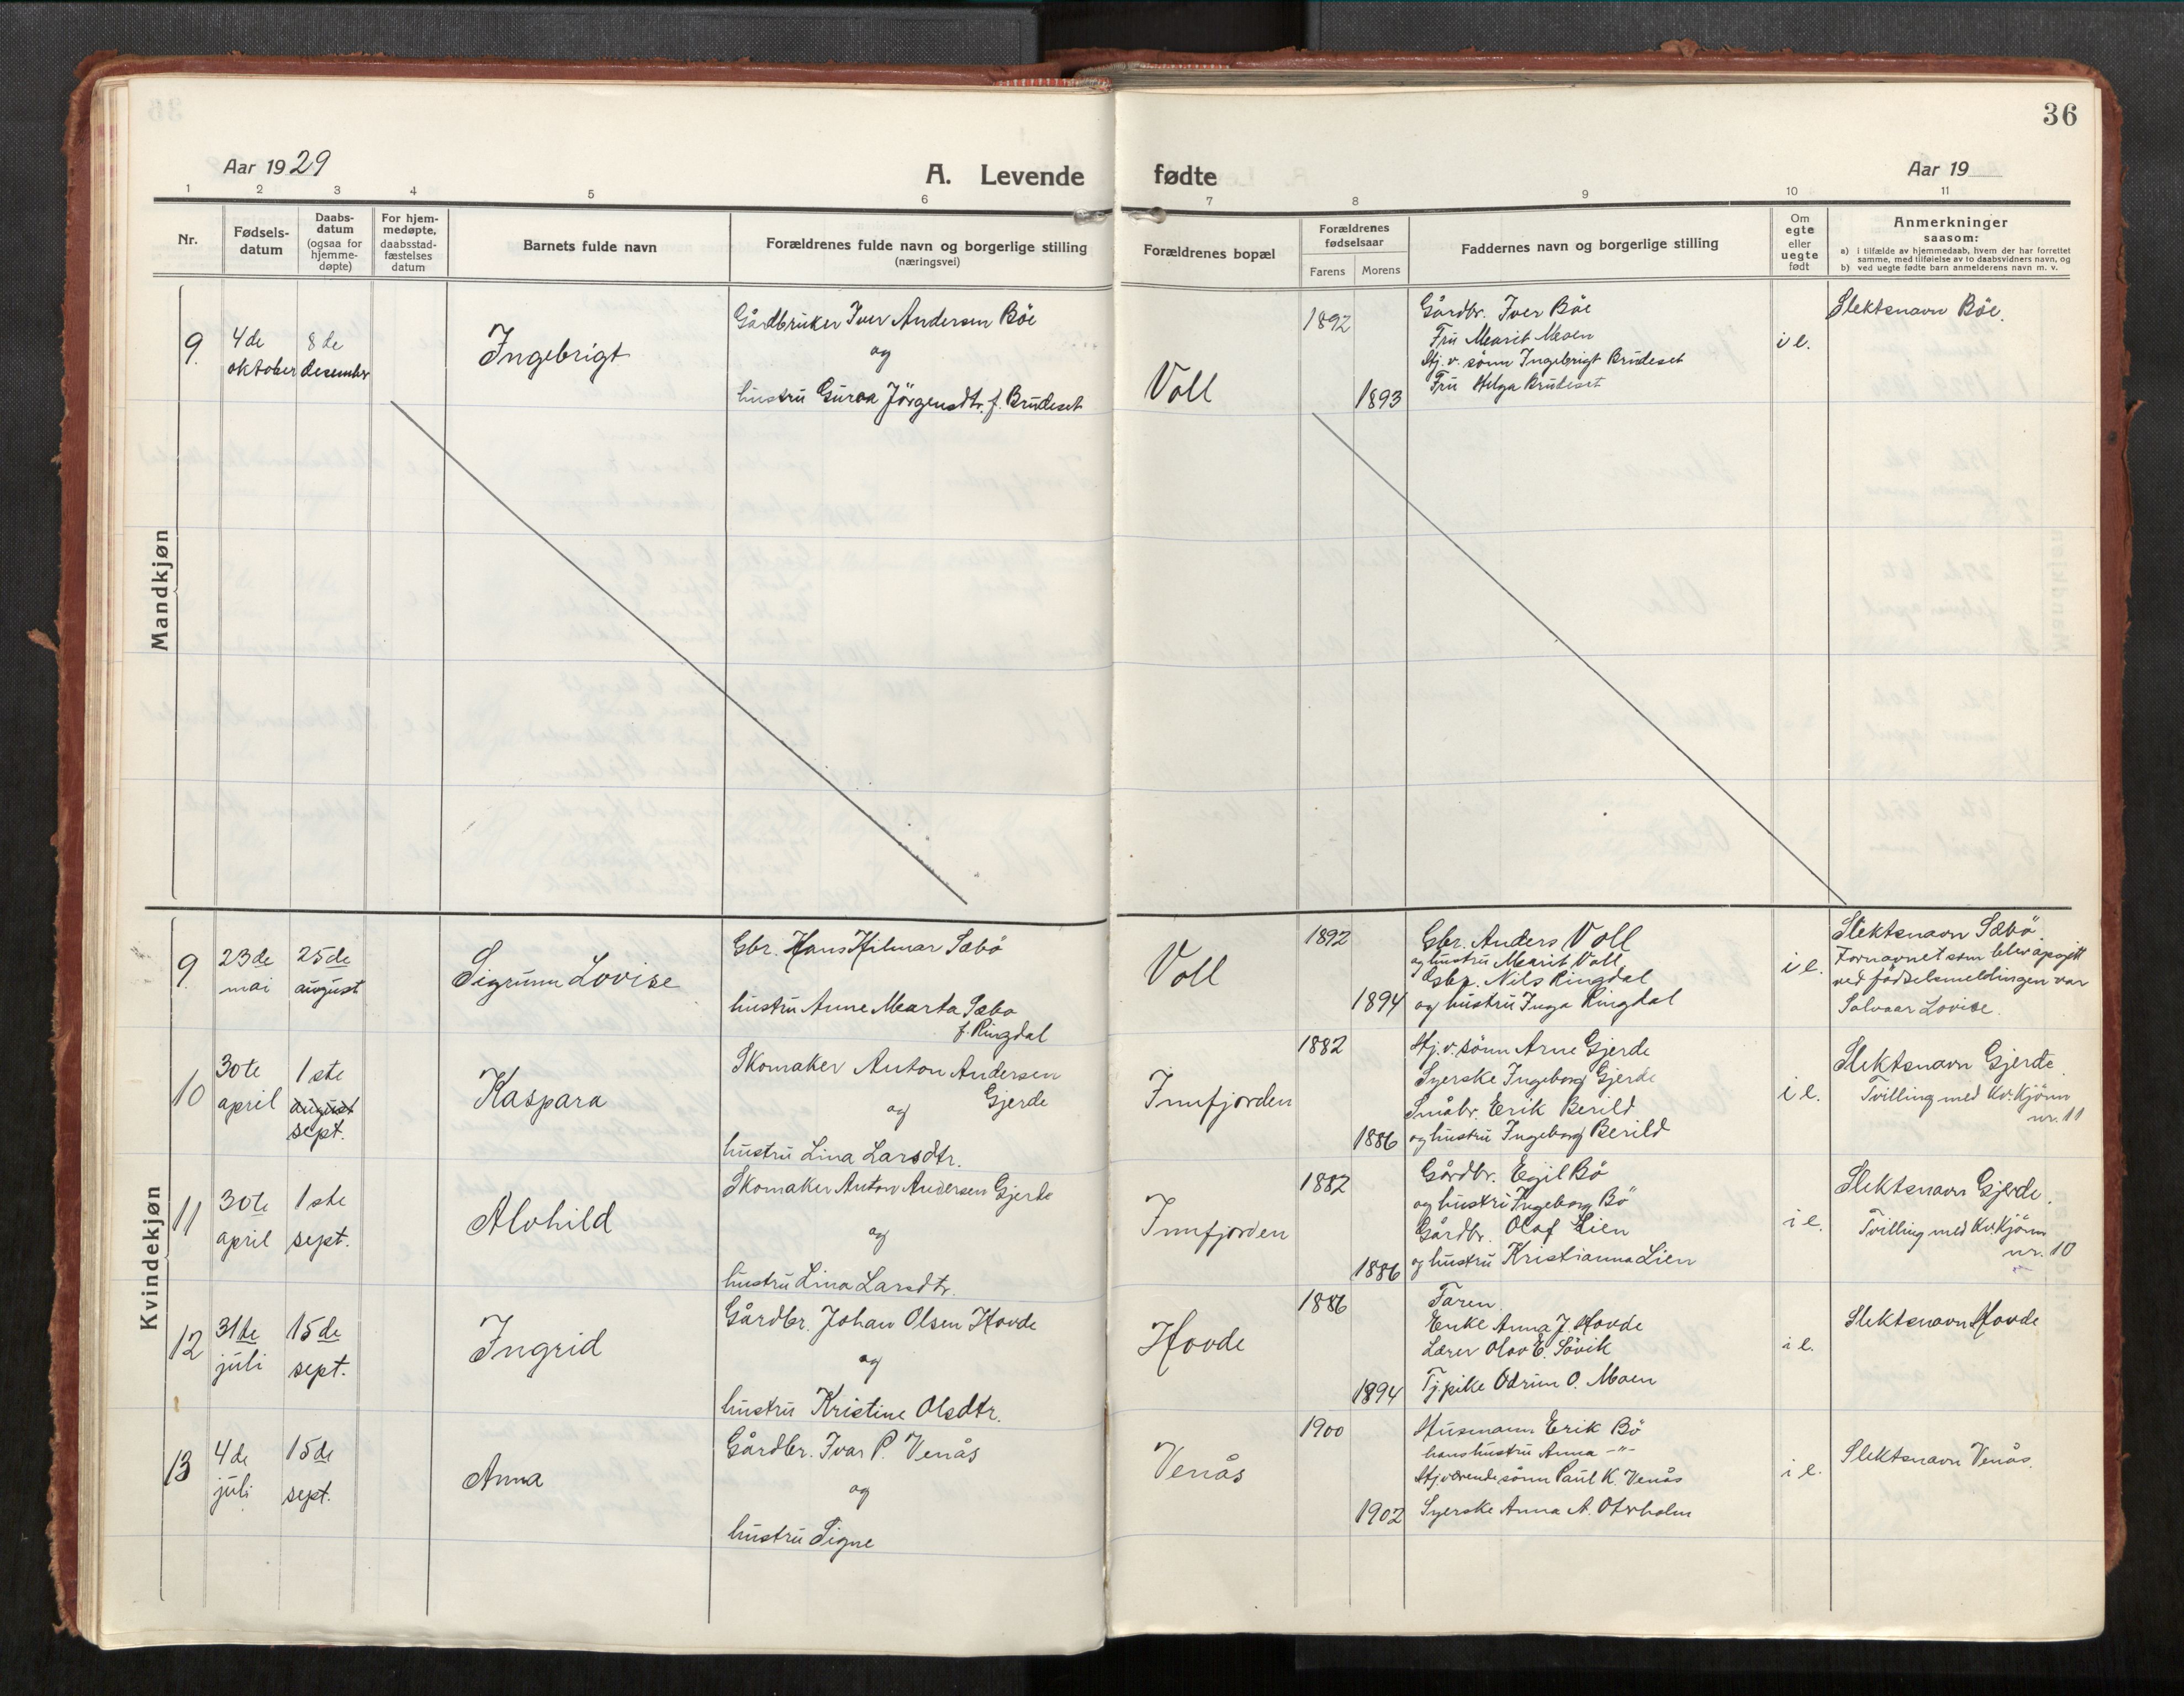 36
Aar 1929
A. Levende fødte
Aar 19
1 2 3 4 5 6 7 8 9 10 11
Nr.
Fødsels-
datum
Daabs-
datum
(ogsaa for
hjemme-
døpte)
For hjem-
medøpte,
daabsstad-
fæstelses
datum
Barnets fulde navn
Forældrenes fulde navn og borgerlige stilling
(næringsvei)
Forældrenes bopæl
Forældrenes
fødselsaar
Farens Morens
Faddernes navn og borgerlige stilling
Om
egte
eller
uegte
født
Anmerkninger
saasom:
a) i tilfælde av hjemmedaab, hvem der har forrettet
samme, med tilføielse av to daabsvidners navn, og
b) ved uegte fødte barn anmelderens navn m. v.
Mandkjøn
9.
4de
oktober
8de
desember
Ingebrigt
Gårdbruker Iver Andersen Böe
og
hustru Guroa Jörgensdtr. f. Brudeset
Voll
1892
1893
Gårdbr. Iver Böe
Fru Marit Moen
Hj. v. sönn Ingebrigt Brudeset
Fru Helga Brudeset
i e.
Slektsnavn Böe.
Kvindekjøn
9
23de
mai
25de
august
Sigrunn Lovise
Gbr. Hans Hilmar Sæbö
hustru Anne Marta Sæbo
f. Ringdal
Voll
1892
1894
Gbr. Anders Voll
og hustru Marit Voll
Gbr. Nils Ringdal
og hustru Inga Ringdal
i e.
Slektsnavn Sæbö
Fornavnet som blev opgitt
ved födselsmeldingen var
Salvaar Lovise.
10
30te
april
1ste
august
sept.
Kaspara
Skomaker Anton Andersen
Gjerde
og
hustru Lina Larsdtr.
Innfjorden
1882
1886
Hj. v. sönn Arne Gjerde
Syerske Ingeborg Gjerde
Småbr. Erik Berild
og hustru Ingeborg Berild
i e.
Slektsnavn Gjerde.
Tvilling med Kv. kjönn
nr. 11
11
30te
april
1ste
sept.
Alvhild
Skomaker Anton Andersen Gjerde
og
hustru Lina Larsdtr.
Innfjorden
1882
1886
Gårdbr. Egil Bö
og hustru Ingeborg Bö
Gårdbr. Olaf Lien
og hustru Kristianna Lien
i e.
Slektsnavn Gjerde.
Tvilling med Kv. kjönn
nr. 10
12
31te
juli
15de
sept.
Ingrid
Gårdbr. Johan Olsen Hovde
og
hustru Kristine Olsdtr.
Hovde
1886
1894
Faren.
Enke Anna J. Hovde
Lærer Olov E. Sövik
Tj.pike Odrun O. Moen
i e.
Slektsnavn Hovde
13
4de
juli
15de
sept.
Anna
Gårdbr. Ivar P. Venås
og
hustru Signe
Venås
1900
1902
Husmann Erik Bö
hans hustru Anna -"-
Hj.værende sönn Paul K. Venås
Syerske Anna A. Oterholm
i e.
Slektsnavn Venås.